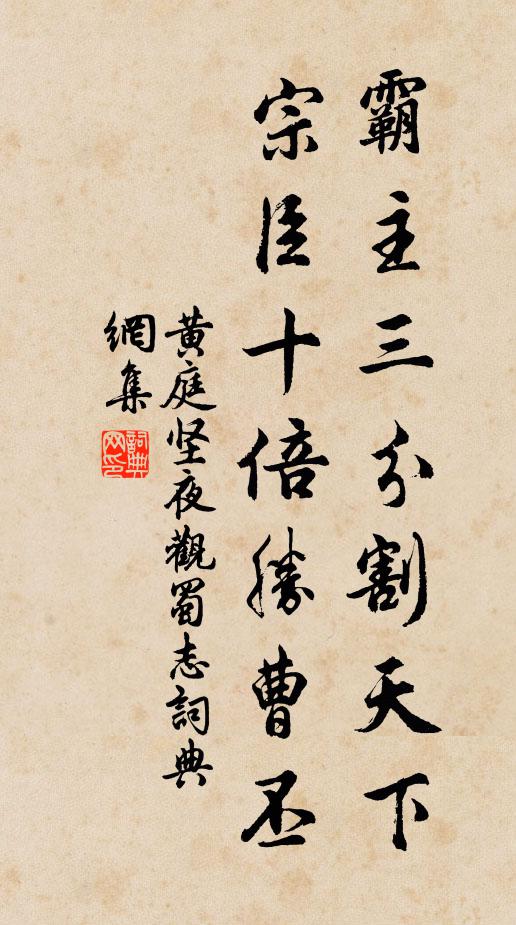 霸主三分割天下
宗臣十倍勝曹丕
黄庭坚夜觀蜀志詞典
網集
詞典网印